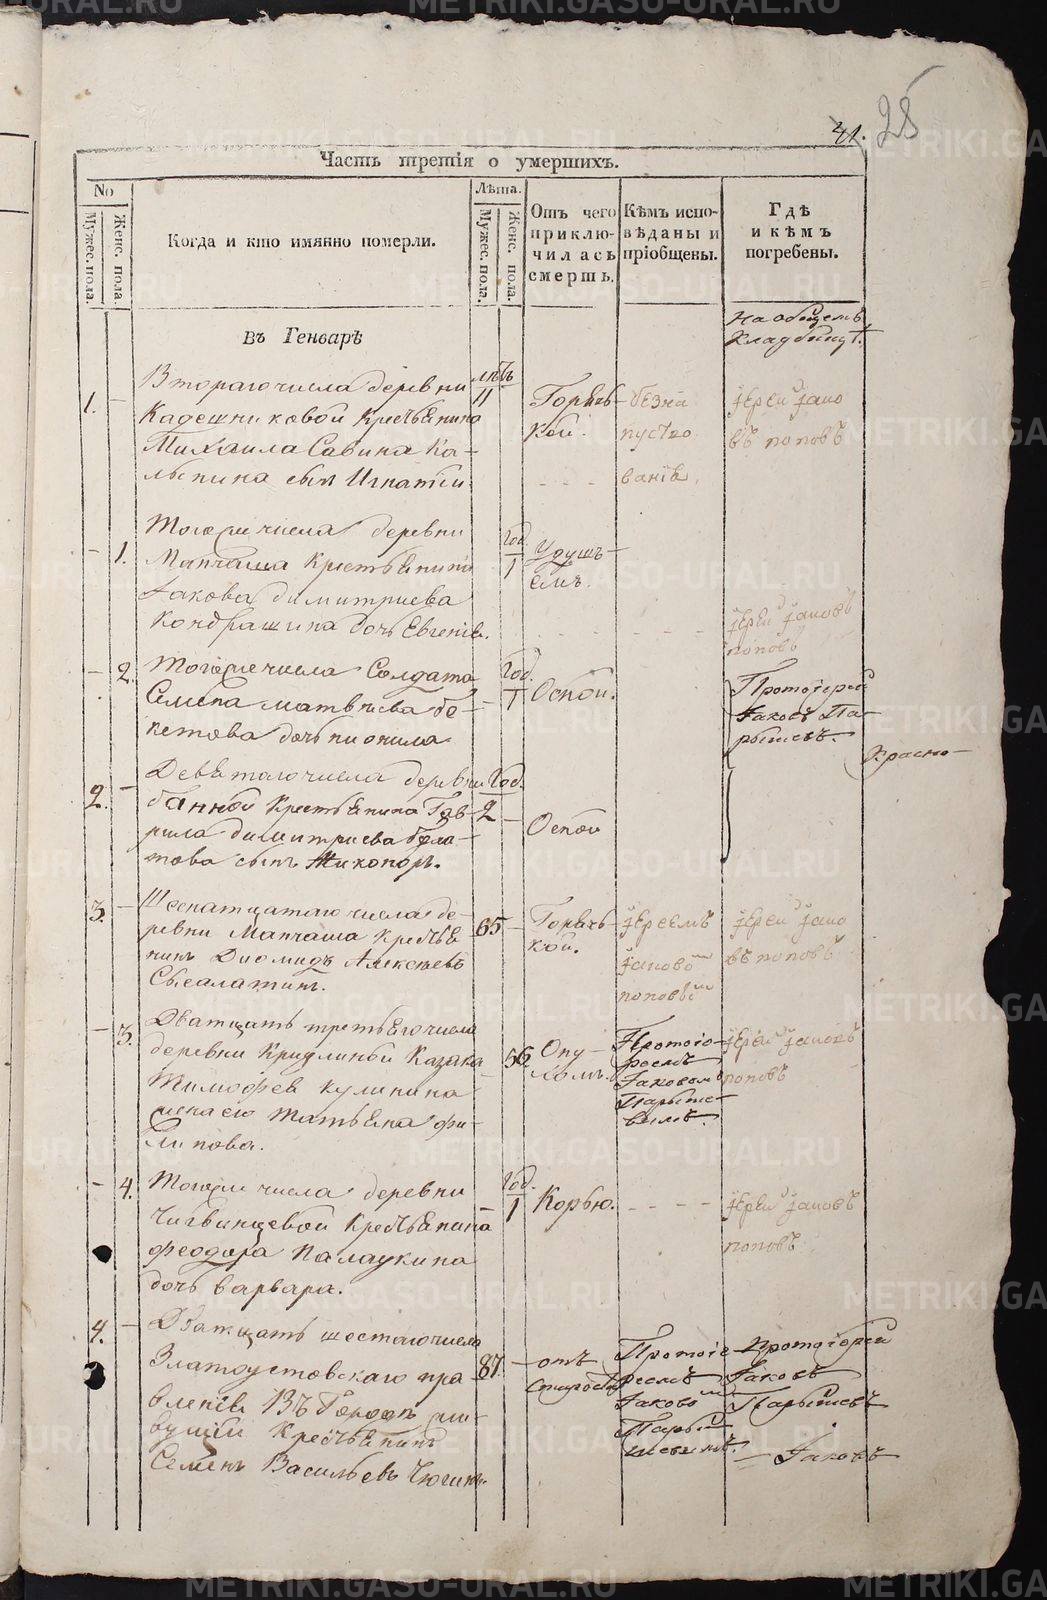 41.
28
Часть третія о умершихъ.
No
Мужес. пола.
Женс. пола.
Когда и кто имянно померли.
Лѣта.
Мужес. пола.
Женс. пола.
Отъ чего приклю-
чилась
смерть.
Кѣмъ испо-
вѣданы и
пріобщены.
Гдѣ
и кѣмъ
погребены.
На общемъ
кладбищѣ.
Въ Генварѣ
1.
Втораго числа деревни
Кадешниковой крестьянина
Михаила Савина Ка-
лыпина сынъ Игнатій
лѣтъ
11
Горяч-
кой.
безна
пуство
ваніѣ.
іерей іако
въ поповъ
1.
Тогоже числа деревни
Мапчаша крестьянина
Іакова Димитриева
Кондрашина дочь Евгенія.
Год.
1
Удушь-
емъ.
іерей іаковъ
поповъ
2.
Тогоже числа Солдата
Семена Матвиева Бе-
кетова дочь
Год.
1
Оспой.
Протоіерей
Іаковъ Па-
рышевъ.
Красно-
2.
Девятаго числа деревни
банной крестьянина Гав-
рила Димитриева
това сынъ Никоноръ.
Год.
2
Оспой
3.
числа де-
ревни Мапчаша крестья
нинъ Диомидъ Алексѣевъ
65
Горяч-
кой.
іереемъ
іаковомъ
поповымъ
іерей іако
въ поповъ
3.
Дватцать третьяго числа
деревни Казака
Тимофея кулипина
жена его Татьяна Фи-
липова.
56
Опу-
холью.
Протоіе-
реемъ
Іаковомъ
Парыше-
вымъ.
іерей іаковъ
поповъ
4.
Тогоже числа деревни
Чигвинцевой крестьянина
Феодора Палаукина
дочь Варвара.
Год.
1
Корью.
іерей іаковъ
поповъ
4.
Дватцать шестаго числа
Златоустовскаго пра-
вленія Въ Городѣ жи-
вущій крестьянинъ
Семенъ Васильевъ Чюгинъ.
87
отъ
старости
Протоіе-
реемъ
Іаковомъ
Пары-
шевымъ.
Протоіерей
Іаковъ
Парышевъ
Іаковъ
METRIKI.GASO-URAL.RU